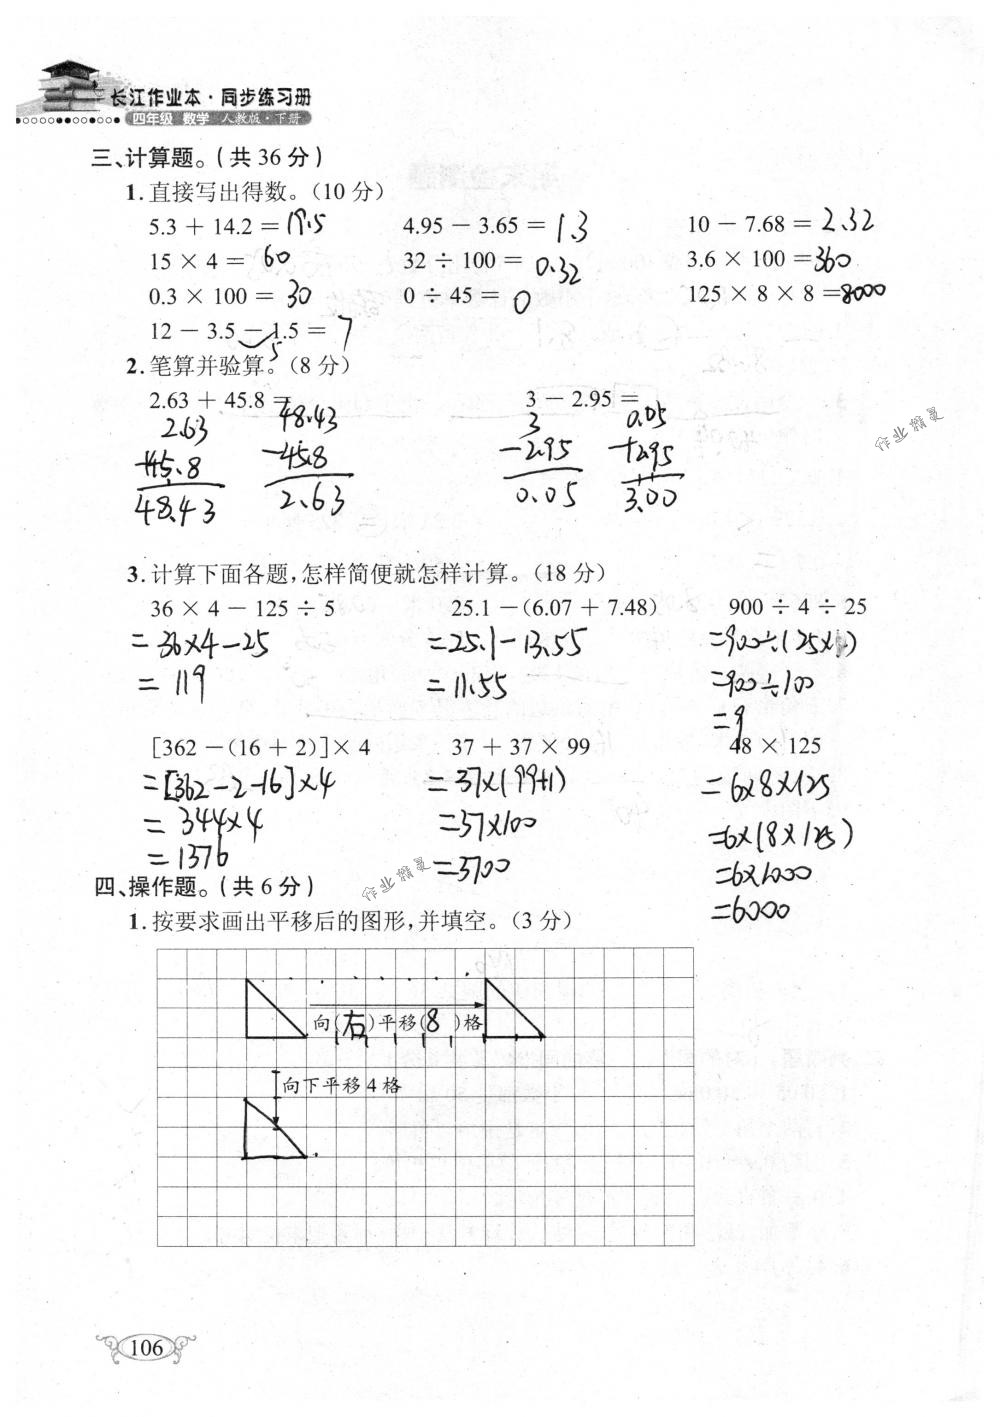 长江作业本·同步练习册
四年级 数学 人教版·下册
三、计算题。(共 36 分)
1. 直接写出得数。(10 分)
5.3 + 14.2 = 19.5 4.95 − 3.65 = 1.3 10 − 7.68 = 2.32
15 × 4 = 60 32 ÷ 100 = 0.32 3.6 × 100 = 360
0.3 × 100 = 30 0 ÷ 45 = 0 125 × 8 × 8 = 8000
12 − 3.5 − 1.5 = 7
5
2. 笔算并验算。(8 分)
2.63 + 45.8 = 3 − 2.95 =
2.63 48.43 3 0.05
+45.8 −45.8 −2.95 +2.95
48.43 2.63 0.05 3.00
作业精灵
3. 计算下面各题,怎样简便就怎样计算。(18 分)
36 × 4 − 125 ÷ 5 25.1 −(6.07 + 7.48) 900 ÷ 4 ÷ 25
= 36×4−25 =25.1−13.55 =900÷(25×4)
= 119 = 11.55 =900÷100
=9
[362 −(16 + 2)] × 4 37 + 37 × 99 48 × 125
=[362−2−16]×4 = 37×(99+1) = 6×8×125
= 344×4 =37×100 =6×(8×125)
= 1376 =3700 =6×1000
=6000
作业精灵
四、操作题。(共 6 分)
1. 按要求画出平移后的图形,并填空。(3 分)
向(右)平移(8)格
向下平移 4 格
106